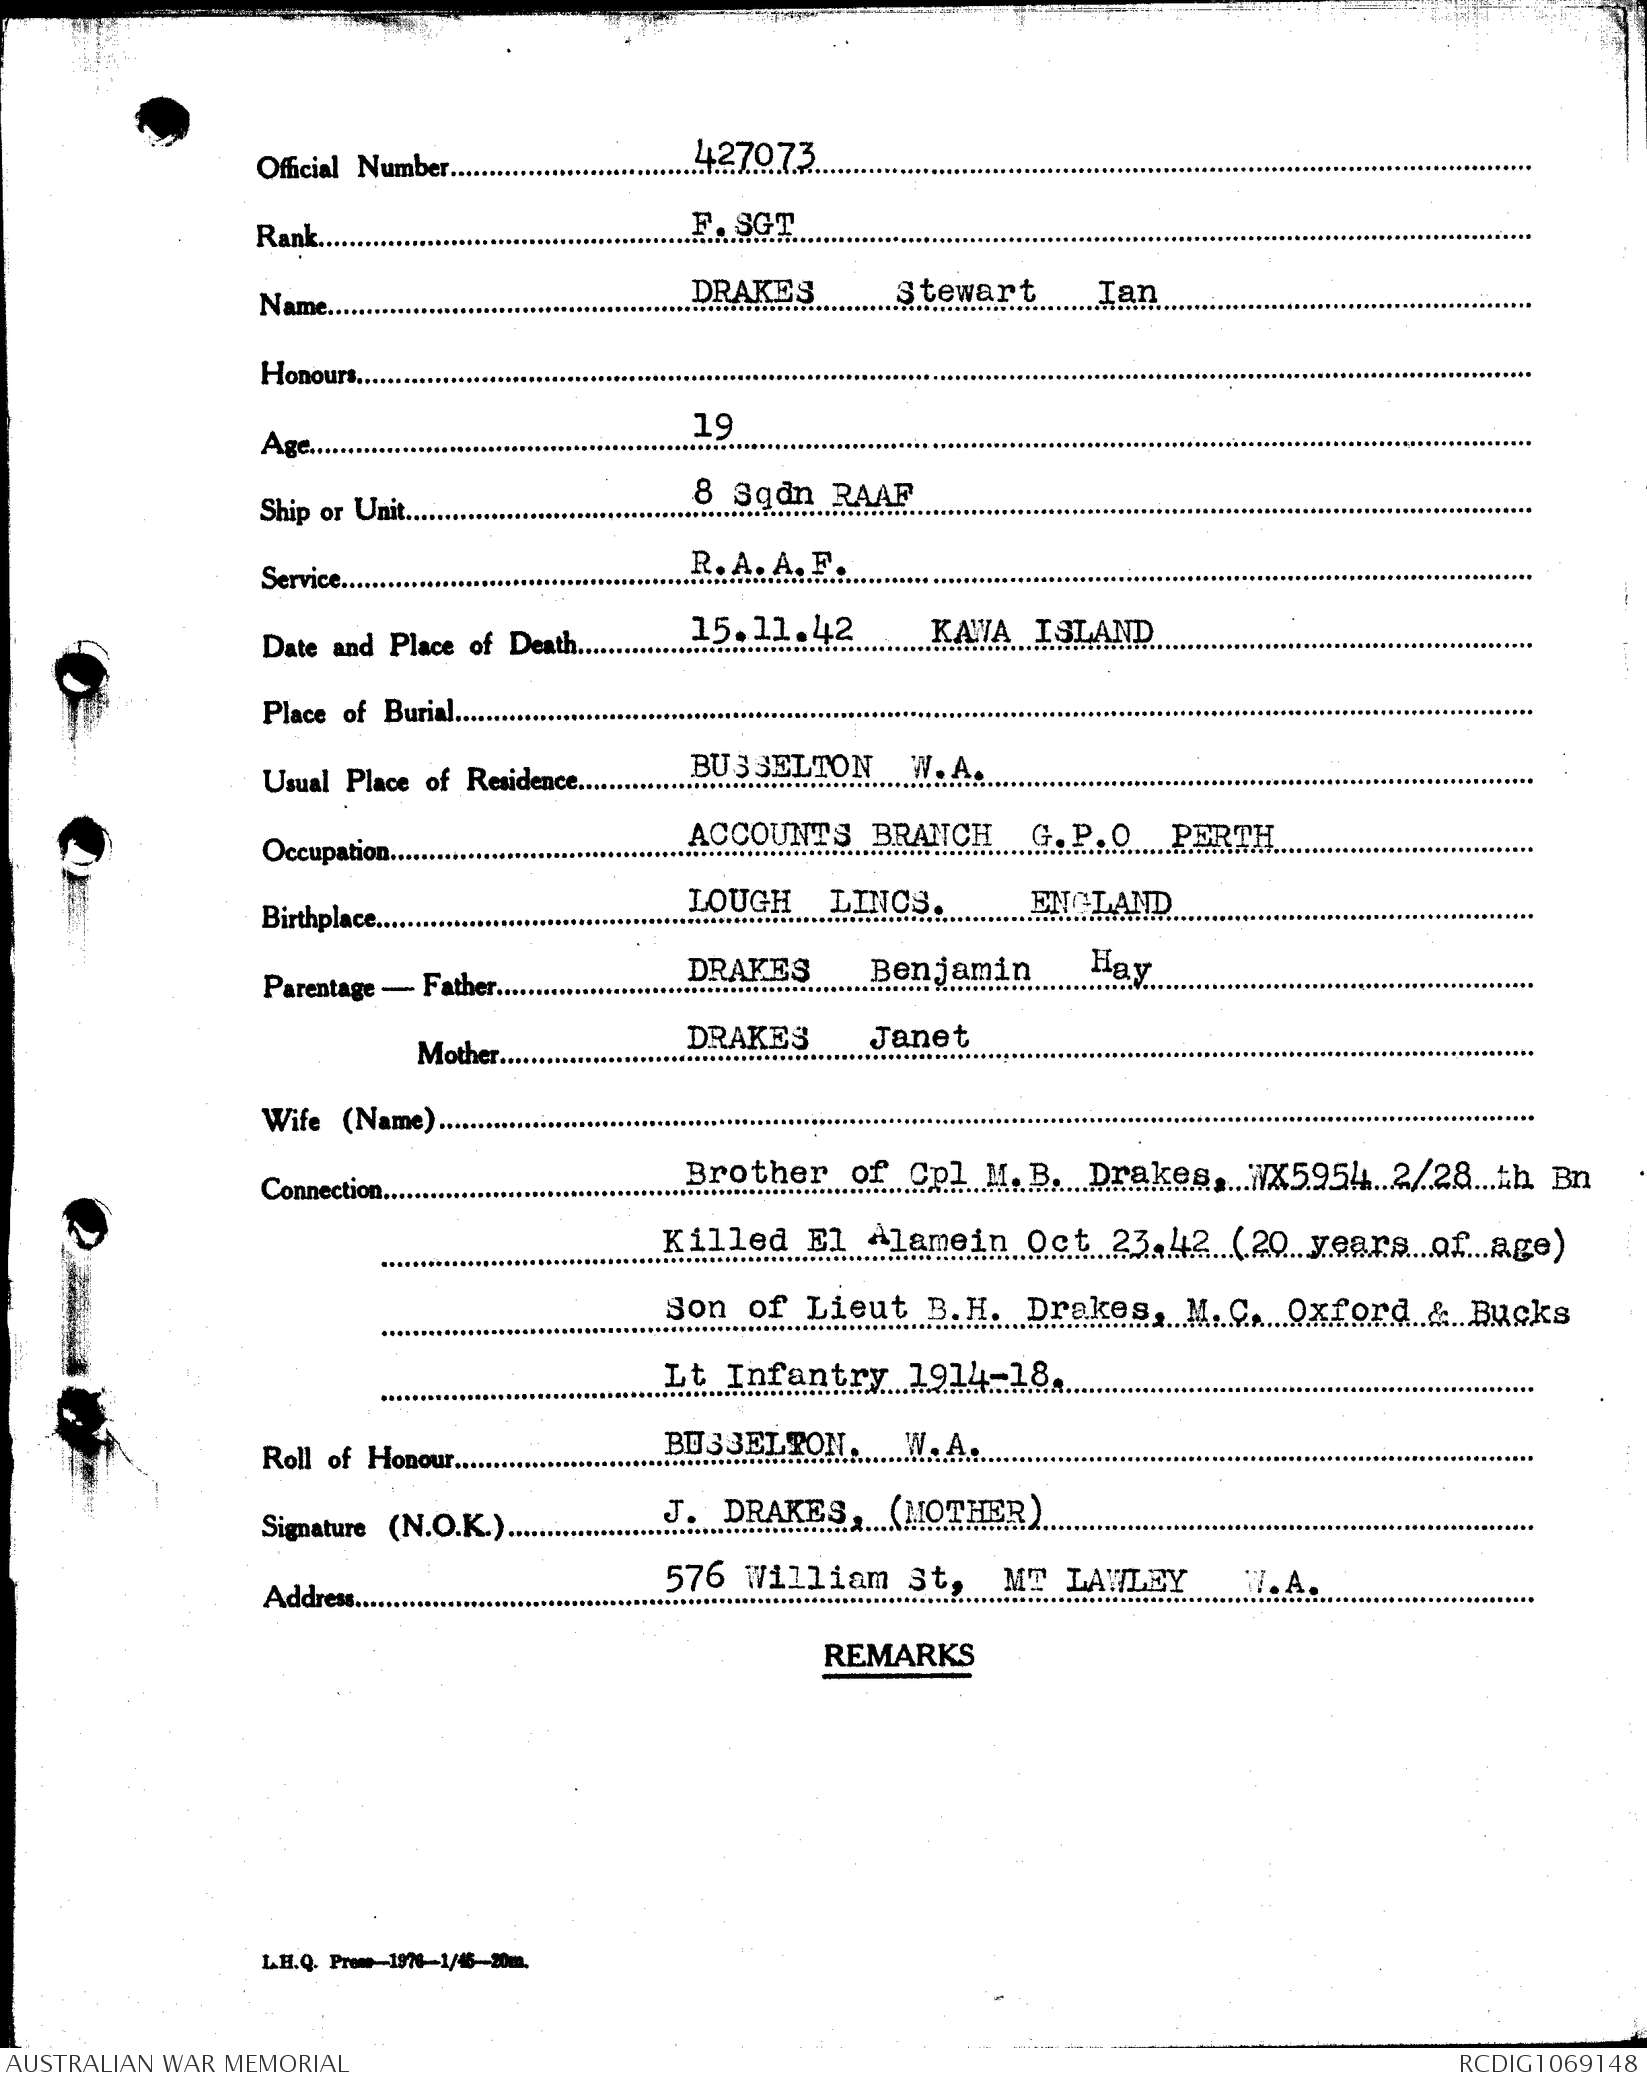 Official Number 427073
Rank F.SGT
Name DRAKES Stewart Ian
Honours
Age 19
Ship or Unit 8 Sqdn RAAF
Service R.A.A.F.
Date and Place of Death 15.11.42 KAWA ISLAND
Place of Burial
Usual Place of Residence BUSSELTON W.A.
Occupation ACCOUNTS BRANCH G.P.O PERTH
Birthplace LOUGH LINCS. ENGLAND
Parentage — Father DRAKES Benjamin Hay
Mother DRAKES Janet
Wife (Name)
Connection Brother of Cpl M.B. Drakes, WX5954 2/28 th Bn
Killed El Alamein Oct 23.42 (20 years of age)
Son of Lieut B.H. Drakes, M.C. Oxford & Bucks
Lt Infantry 1914-18.
Roll of Honour BUSSELTON. W.A.
Signature (N.O.K.) J. DRAKES, (MOTHER)
Address 576 William St, MT LAWLEY W.A.
REMARKS
L.H.Q. Press—1976—1/45—20m.
AUSTRALIAN WAR MEMORIAL
RCDIG1069148